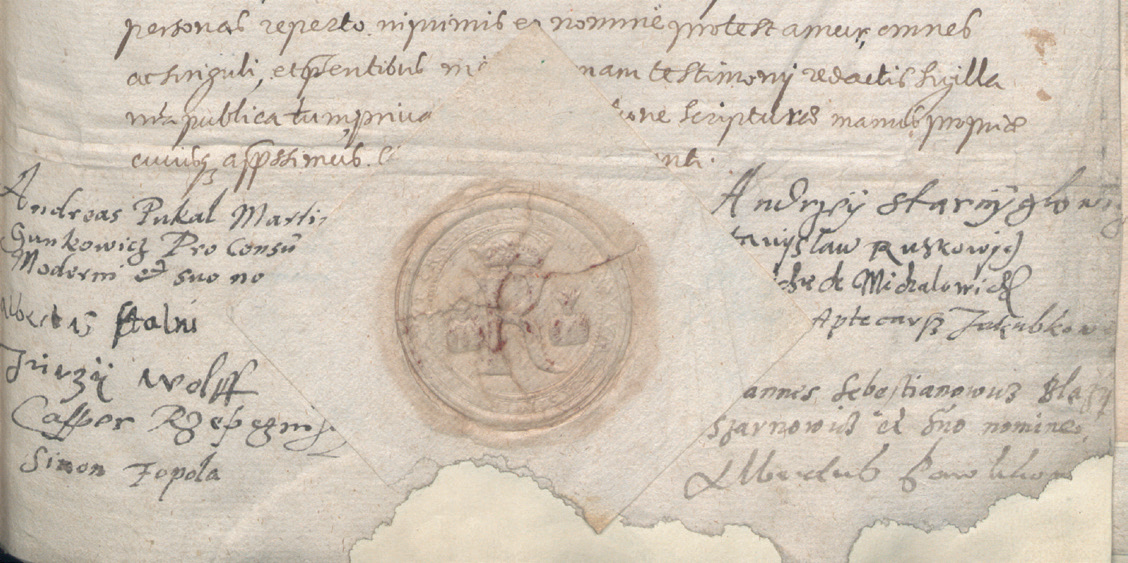 personas reperto. inprimis et nomine protestamur, omnes
ac singuli, et pr̃entibus in nam testimonij redactis sigilla
nr̃a publica tum, priva one scripturas manus propriæ
cuiusq; appressimus.
Andreas Pukal Marti
Gunkowicz Pro Consũ
Moderni et suo no
Albertus Stalni
Jurzÿ Wolff
Casper
Simon Topola
Andrzÿ starnÿ
anysław Ruskowẏc
de Michalowic
Aptecarz Jakubkow
annes Sebestianowicz Bla
szarnowicz et suo nomine
Albertus